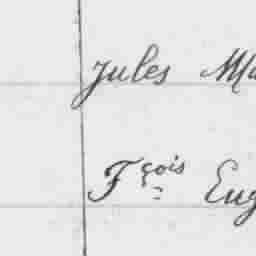 Jules Ma
Fçois Eug